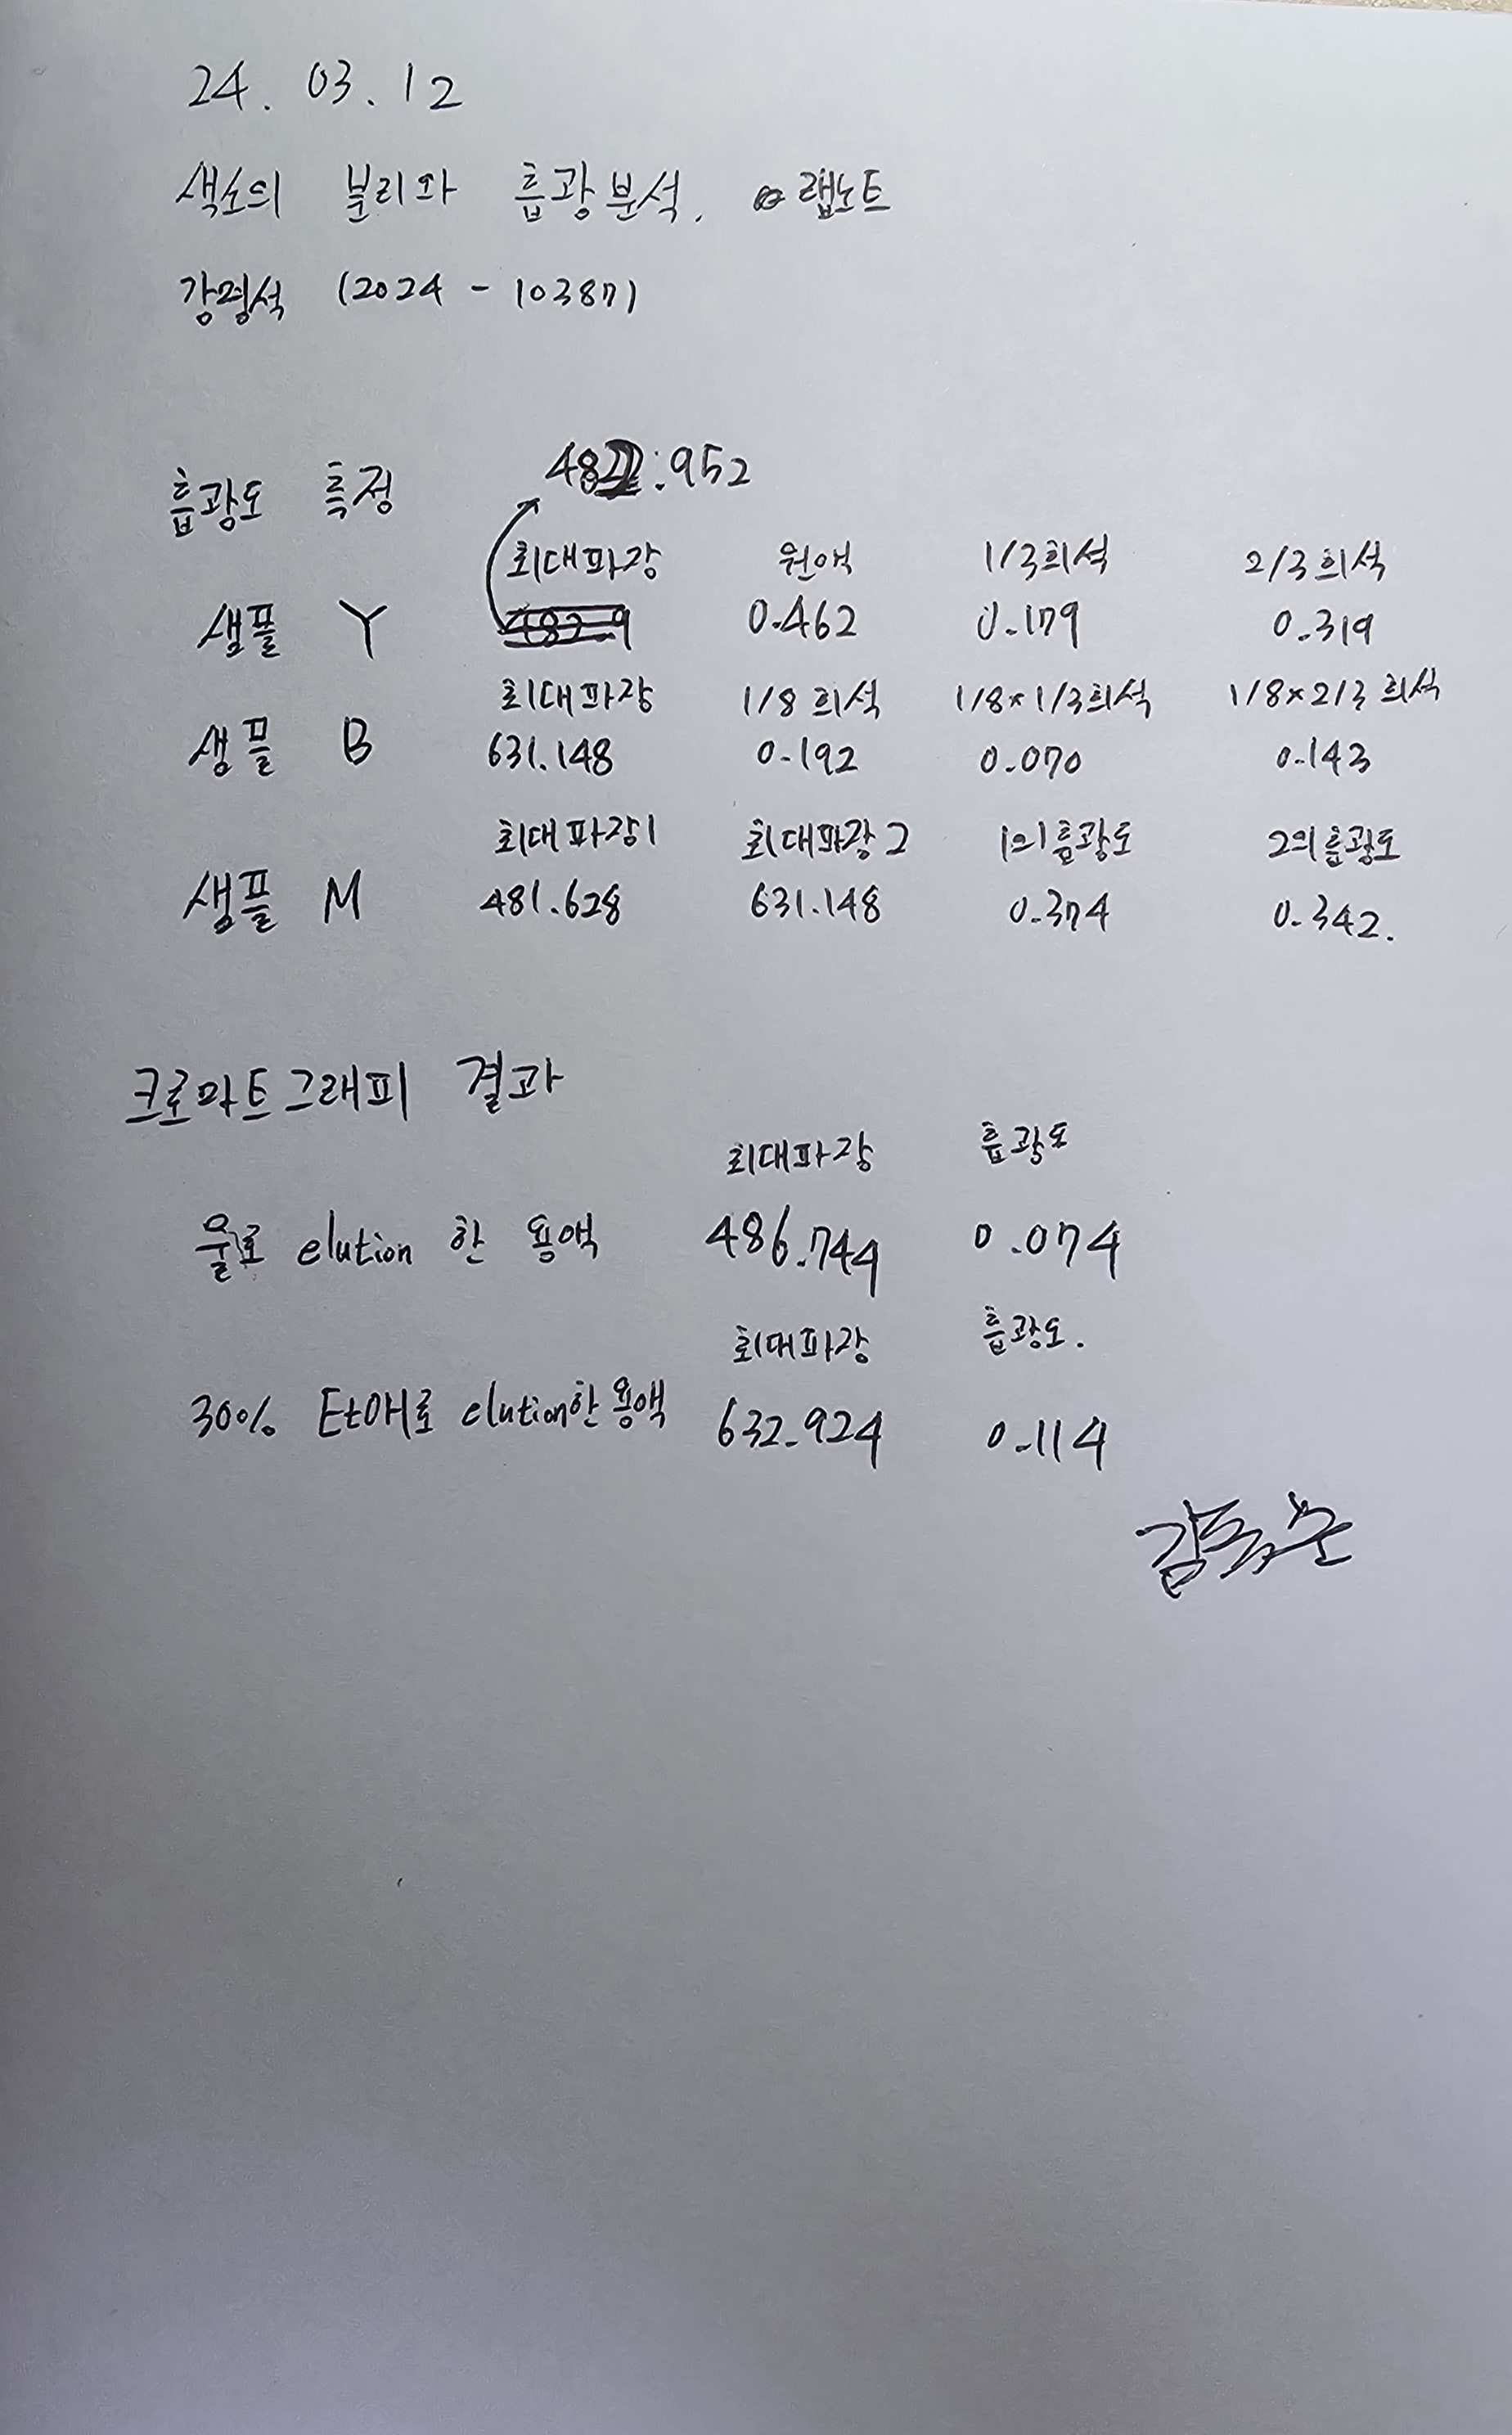 24. 03. 12
색소의 분리와 흡광분석. 랩노트
강명석 (2024 - 10387)
흡광도 측정 482.952
최대파장 원액 1/3희석 2/3희석
샘플 Y 0.462 0.179 0.319
최대파장 1/8 희석 1/8×1/3희석 1/8×2/3 희석
샘플 B 631.148 0.192 0.070 0.143
최대파장1 최대파장2 1의 흡광도 2의 흡광도
샘플 M 481.628 631.148 0.374 0.342.
크로마토그래피 결과
최대파장 흡광도
물로 elution 한 용액 486.744 0.074
최대파장 흡광도.
30% EtOH로 elution한 용액 632.924 0.114